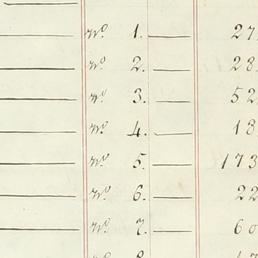 No. 1. 27
No. 2. 28
No. 3. 52
No. 4. 18
No. 5. 173
No. 6. 22
No. 7. 60